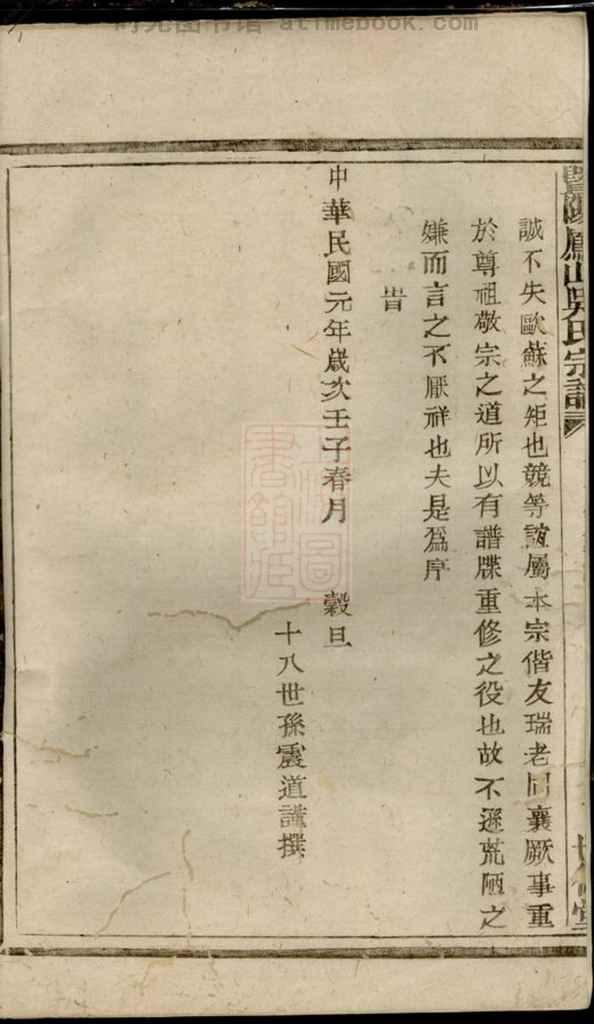 时光图书馆 atimebook.com
暨陽鳳山吳氏宗譜
誠不失歐蘇之矩也競等誼屬本宗偕友瑞老同襄厥事重
於尊祖敬宗之道所以有譜牒重修之役也故不遜荒陋之
嫌而言之不厭祥也夫是爲序
旹
中華民國元年歲次壬子春月 穀旦
十八世孫震道謹撰